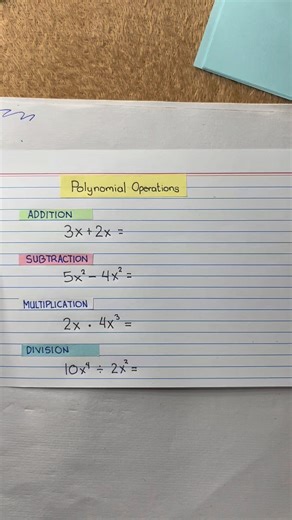 Polynomial Operations
ADDITION
3x + 2x =
SUBTRACTION
5x² - 4x² =
MULTIPLICATION
2x · 4x³ =
DIVISION
10x⁴ ÷ 2x² =